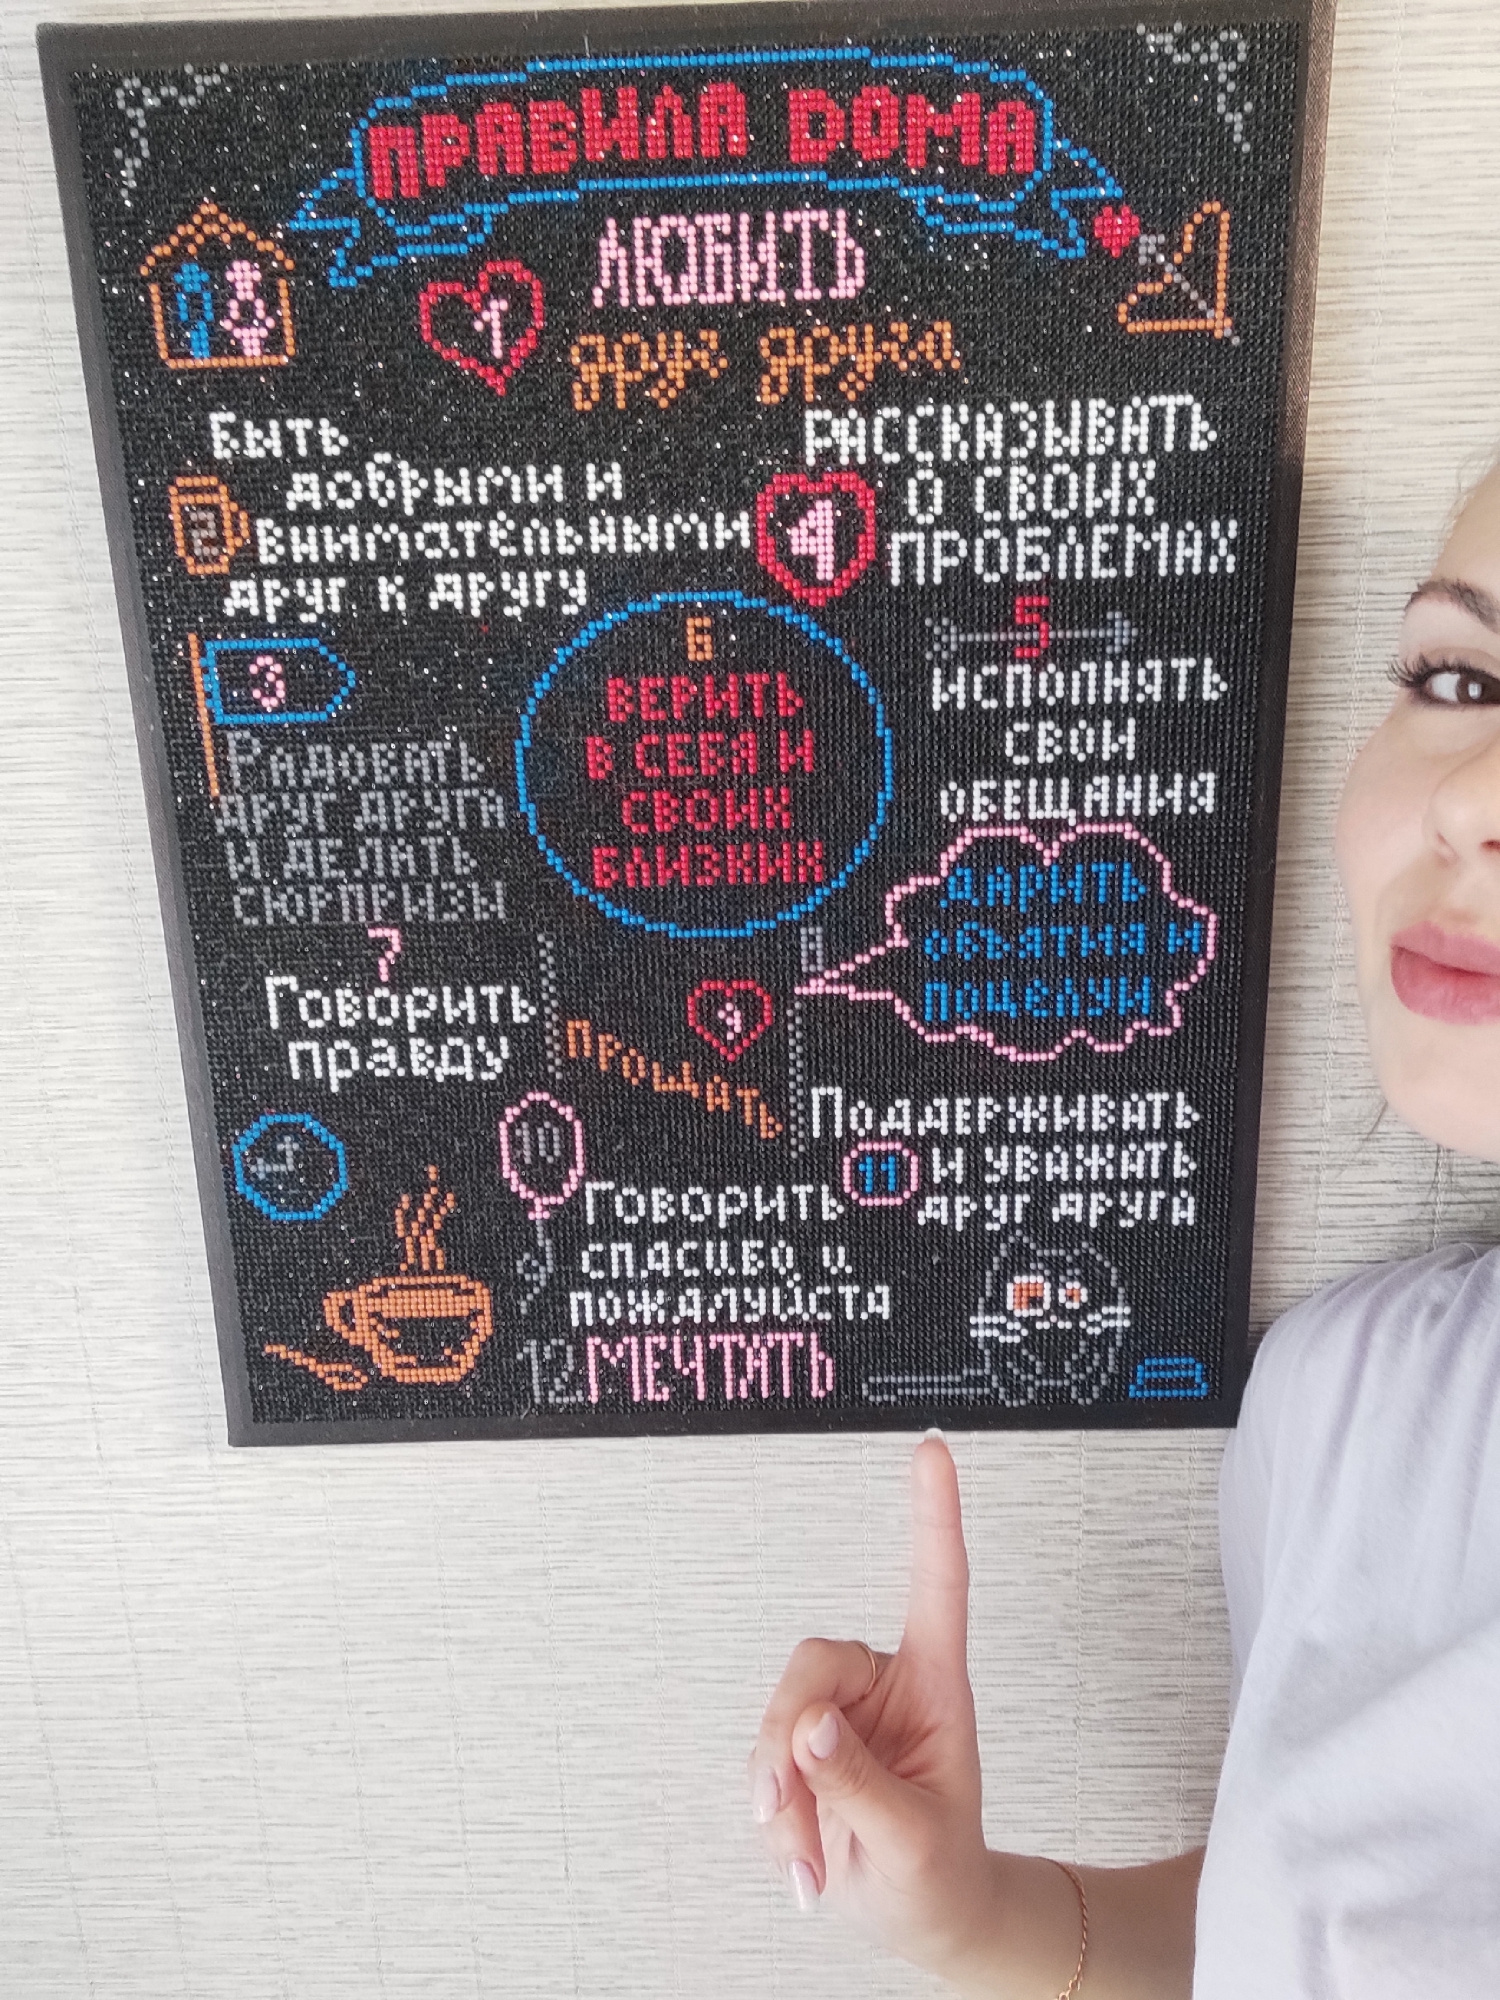 ПРАВИЛА ДОМА
1
ЛЮБИТЬ
друг друга
2
Быть
добрыми и
внимательными
друг к другу
4
РАССКАЗЫВАТЬ
О СВОИХ
ПРОБЛЕМАХ
3
Радовать
друг друга
и делать
сюрпризы
6
ВЕРИТЬ
В СЕБЯ И
СВОИХ
БЛИЗКИХ
5
ИСПОЛНЯТЬ
СВОИ
ОБЕЩАНИЯ
8
ДАРИТЬ
ОБЪЯТИЯ И
ПОЦЕЛУИ
7
Говорить
правду
9
ПРОЩАТЬ
10
Говорить
спасибо и
пожалуйста
11
Поддерживать
и уважать
друг друга
12 МЕЧТАТЬ